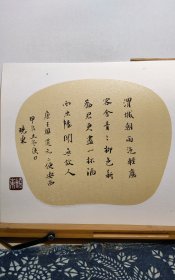 渭城朝雨浥輕塵
客舍青々柳色新
勸君更盡一杯酒
西出陽關無故人
唐王維送元二使安西